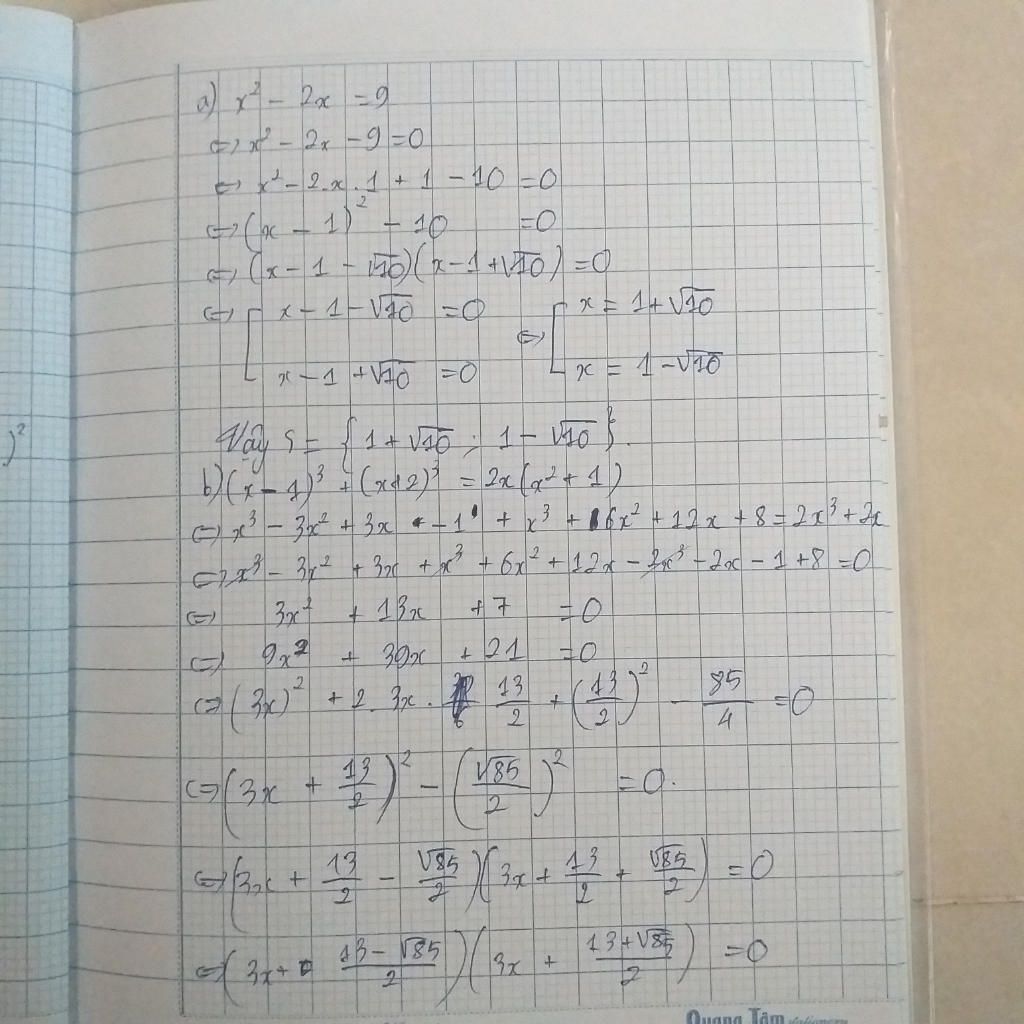 )²
a) x² - 2x = 9
⇔ x² - 2x - 9 = 0
⇔ x² - 2.x.1 + 1 - 10 = 0
⇔ (x - 1)² - 10 = 0
⇔ (x - 1 - √10)(x - 1 + √10) = 0
⇔ [ x - 1 - √10 = 0 ⇔ [ x = 1 + √10
x - 1 + √10 = 0 x = 1 - √10
Vậy S = {1 + √10 ; 1 - √10}.
b) (x - 1)³ + (x + 2)³ = 2x(x² + 1)
⇔ x³ - 3x² + 3x - 1 + x³ + 6x² + 12x + 8 = 2x³ + 2x
⇔ x³ - 3x² + 3x + x³ + 6x² + 12x - 2x³ - 2x - 1 + 8 = 0
⇔ 3x² + 13x + 7 = 0
⇔ 9x² + 39x + 21 = 0
⇔ (3x)² + 2.3x. 13/2 + (13/2)² - 85/4 = 0
⇔ (3x + 13/2)² - (√85/2)² = 0.
⇔ (3x + 13/2 - √85/2)(3x + 13/2 + √85/2) = 0
⇔ (3x + (13 - √85)/2)(3x + (13 + √85)/2) = 0
Quang Tâm stationery